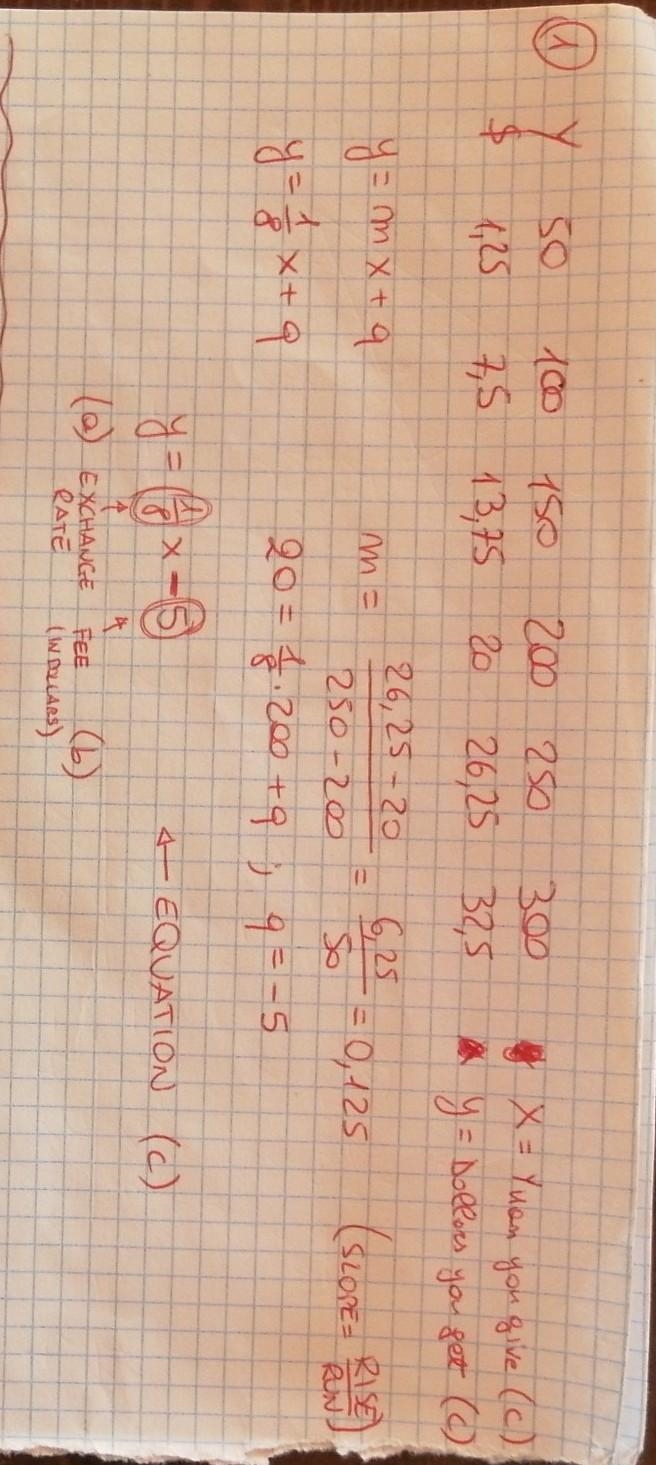 ① Y 50 100 150 200 250 300 X = Yuan you give (c)
$ 1,25 7,5 13,75 20 26,25 32,5 y = Dollars you get (c)
y = mx + q m = \frac{26,25 - 20}{250 - 200} = \frac{6,25}{50} = 0,125 (SLOPE = \frac{RISE}{RUN})
y = \frac{1}{8} x + q 20 = \frac{1}{8} · 200 + q ; q = -5
y = \frac{1}{8} x - 5 ← EQUATION (c)
(a) EXCHANGE RATE FEE (IN DOLLARS) (b)